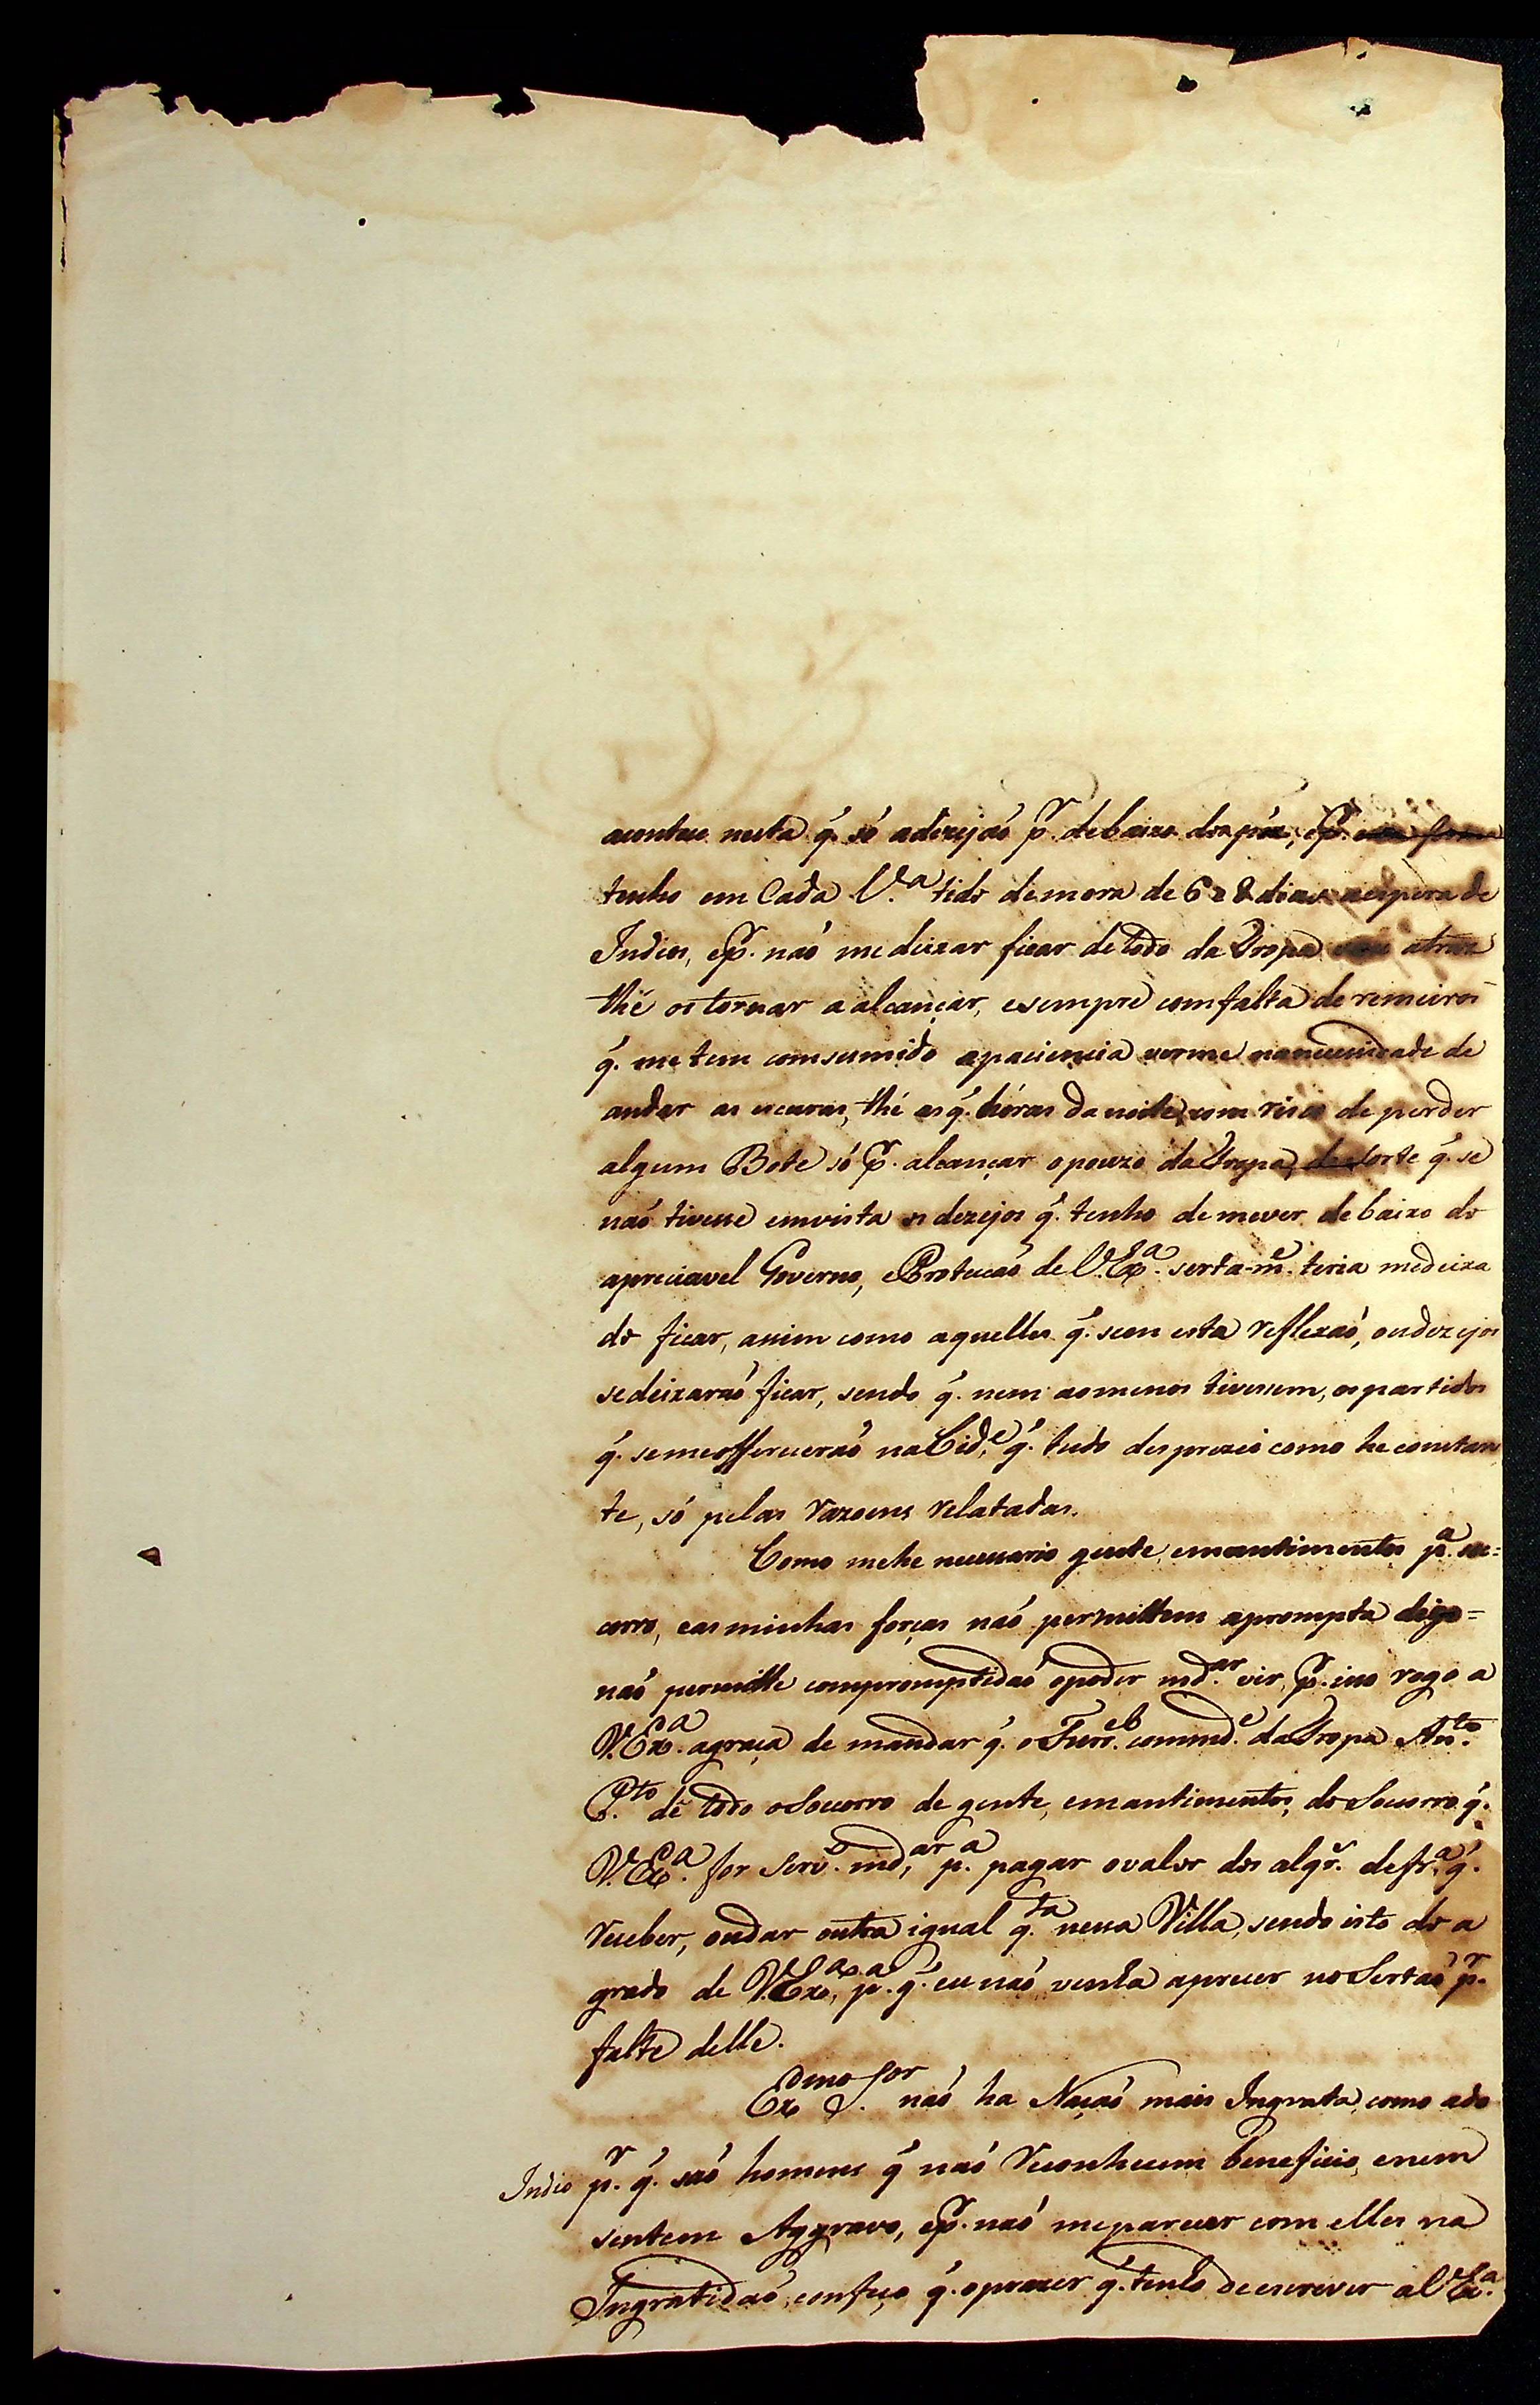 acontece nesta q̃. só adezejaó p.r debaixo dos pés; e p.r esta forma
tenho em Cada V.a tido demora de 6 e 8 dias aespera de
Indios, e p.r naó medeixar ficar detodo da Tropa atraz
thé os tornar a alcançar, esempre comfalta de remeiros
q̃. me tem comsumido apaciencia verme nanecessidade de
andar as escuras, thé as q̃. hóras da noite, com risco de perder
algum Bote só p.r alcançar opouzo da Tropa, de sorte q̃. se
naó tivesse emvista os dezejos q̃. tenho demever debaixo do
apreciavel Governo, eProtecaó de V.Ex.a serta-m.e teria medeixa
do ficar, assim como aquelles q̃. sem esta reflexaó, oudezejos
sedeixaraó ficar, sendo q̃. nem aomenos tivessem, ospartidos
q̃. semeoffereceraó naCid.e, q̃. tudo desprezei como he constan
te, só pelas razoens relatadas.
Como mehe necessario gente, emantimentos p.a so=
corro, easminhas forças naó permittem aprompta digo=
naó permitte compromptidaó opoder md.ar vir, p.r isso rogo a
V.Ex.a agraça de mandar q̃. o Furr.el commd.e daTropa An.to
P.to dê todo oSocorro de gente, emantimentos, do Socorro q̃.
V.Ex.a for Serv.o md.ar, p.a pagar ovalor dos alqr.s defr.a q̃.
receber, oudar outra igual q.ta nessa Villa, sendo isto do a
grado de V.Ex.a, p.a q̃. eu naó venha aprecer no Sertaó p.r
falta delle.
Ex.mo S.or naó ha Naçaó mais Ingrata, como ado
Indio p.r q̃. saó homens q̃ naó reconhecem beneficio, enem
sentem Aggravo, e p.r naó meparecer com elles na
Ingratidaó, confeço q̃. oprazer q̃. tenho deescrever a V.Ex.a